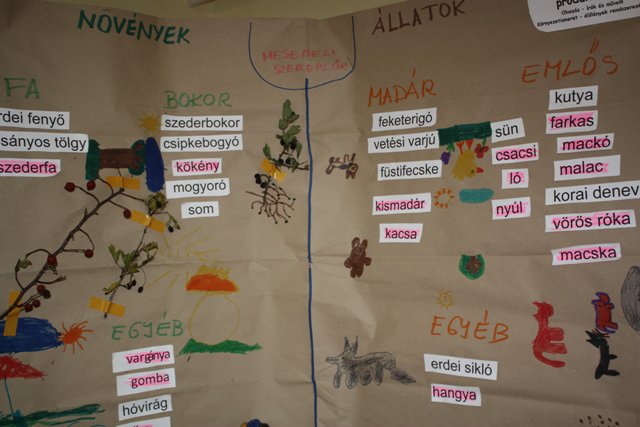 NÖVÉNYEK
MESEBELI
SZEREPLŐK
ÁLLATOK
Olvasás - írók és műveik
Környezetismeret - élőlények rendszerezé
FA
rdei fenyő
sányos tölgy
szederfa
BOKOR
szederbokor
csipkebogyó
kökény
mogyoró
som
EGYÉB
vargánya
gomba
hóvirág
MADÁR
feketerigó
vetési varjú
füstifecske
kismadár
kacsa
EMLŐS
sün
csacsi
ló
nyúl
kutya
farkas
mackó
malac
korai denev
vörös róka
macska
EGYÉB
erdei sikló
hangya